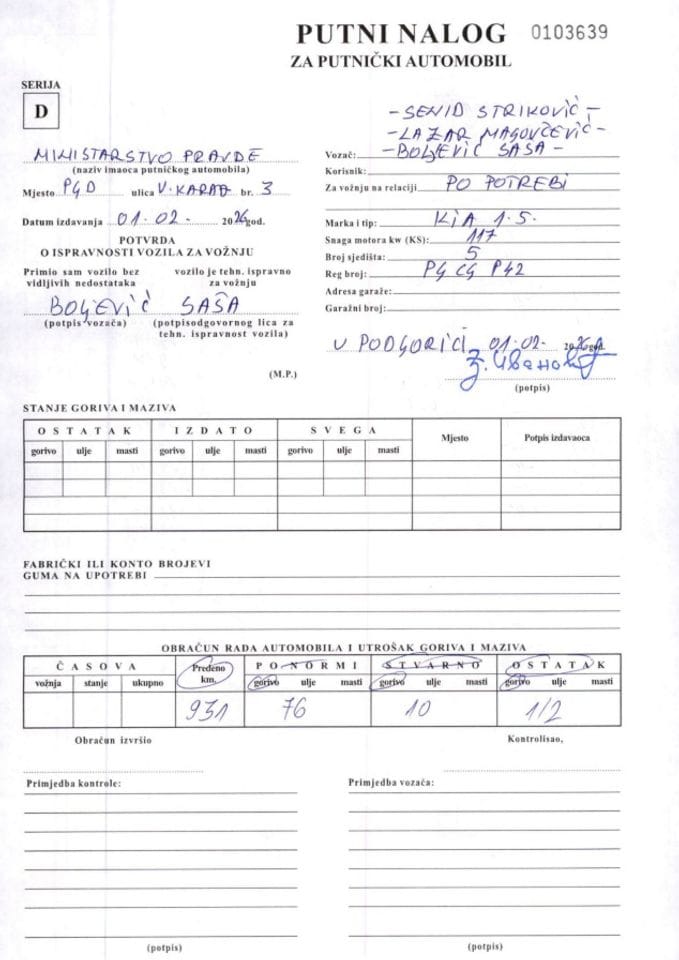 PUTNI NALOG 0103639
ZA PUTNIČKI AUTOMOBIL
SERIJA
D
- SENID STRIKOVIĆ -
- LAZAR MAGOVČEVIĆ -
MINISTARSTVO PRAVDE
(naziv imaoca putničkog automobila)
Mjesto PGD ulica V. KARAĐ br. 3
Datum izdavanja 01.02. 2026 god.
POTVRDA
O ISPRAVNOSTI VOZILA ZA VOŽNJU
Primio sam vozilo bez vidljivih nedostataka
vozilo je tehn. ispravno za vožnju
BOLJEVIĆ SAŠA
(potpis vozača) (potpisodgovornog lica za tehn. ispravnost vozila)
(M.P.)
Vozač: - BOLJEVIĆ SAŠA -
Korisnik:
Za vožnju na relaciji PO POTREBI
Marka i tip: KIA 1.5.
Snaga motora kw (KS): 117
Broj sjedišta: 5
Reg broj: PG CG P42
Adresa garaže:
Garažni broj:
U PODGORICI, 01.02. 2026 god.
(potpis)
STANJE GORIVA I MAZIVA
OSTATAK IZDATO SVEGA Mjesto Potpis izdavaoca
gorivo ulje masti gorivo ulje masti gorivo ulje masti
FABRIČKI ILI KONTO BROJEVI
GUMA NA UPOTREBI
OBRAČUN RADA AUTOMOBILA I UTROŠAK GORIVA I MAZIVA
ČASOVA Pređeno km. PO NORMI STVARNO OSTATAK
vožnja stanje ukupno gorivo ulje masti gorivo ulje masti gorivo ulje masti
931 76 10 1/2
Obračun izvršio Kontrolisao,
Primjedba kontrole: Primjedba vozača:
(potpis) (potpis)